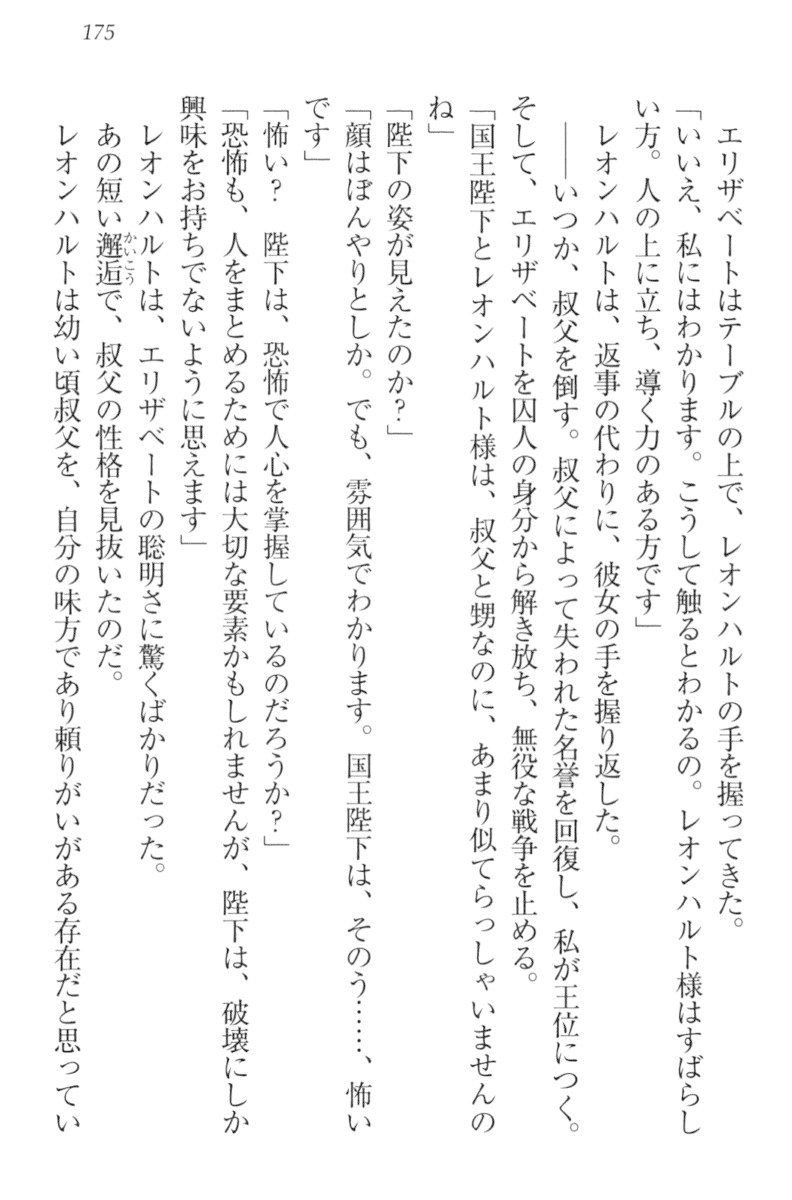 175
エリザベートはテーブルの上で、レオンハルトの手を握ってきた。
「いいえ、私にはわかります。こうして触るとわかるの。レオンハルト様はすばらし
い方。人の上に立ち、導く力のある方です」
レオンハルトは、返事の代わりに、彼女の手を握り返した。
――いつか、叔父を倒す。叔父によって失われた名誉を回復し、私が王位につく。
そして、エリザベートを囚人の身分から解き放ち、無役な戦争を止める。
「国王陛下とレオンハルト様は、叔父と甥なのに、あまり似てらっしゃいませんの
ね」
「陛下の姿が見えたのか？」
「顔はぼんやりとしか。でも、雰囲気でわかります。国王陛下は、そのう……、怖い
です」
「怖い？　陛下は、恐怖で人心を掌握しているのだろうか？」
「恐怖も、人をまとめるためには大切な要素かもしれませんが、陛下は、破壊にしか
興味をお持ちでないように思えます」
レオンハルトは、エリザベートの聡明さに驚くばかりだった。
あの短い邂逅かいこうで、叔父の性格を見抜いたのだ。
レオンハルトは幼い頃叔父を、自分の味方であり頼りがいがある存在だと思ってい